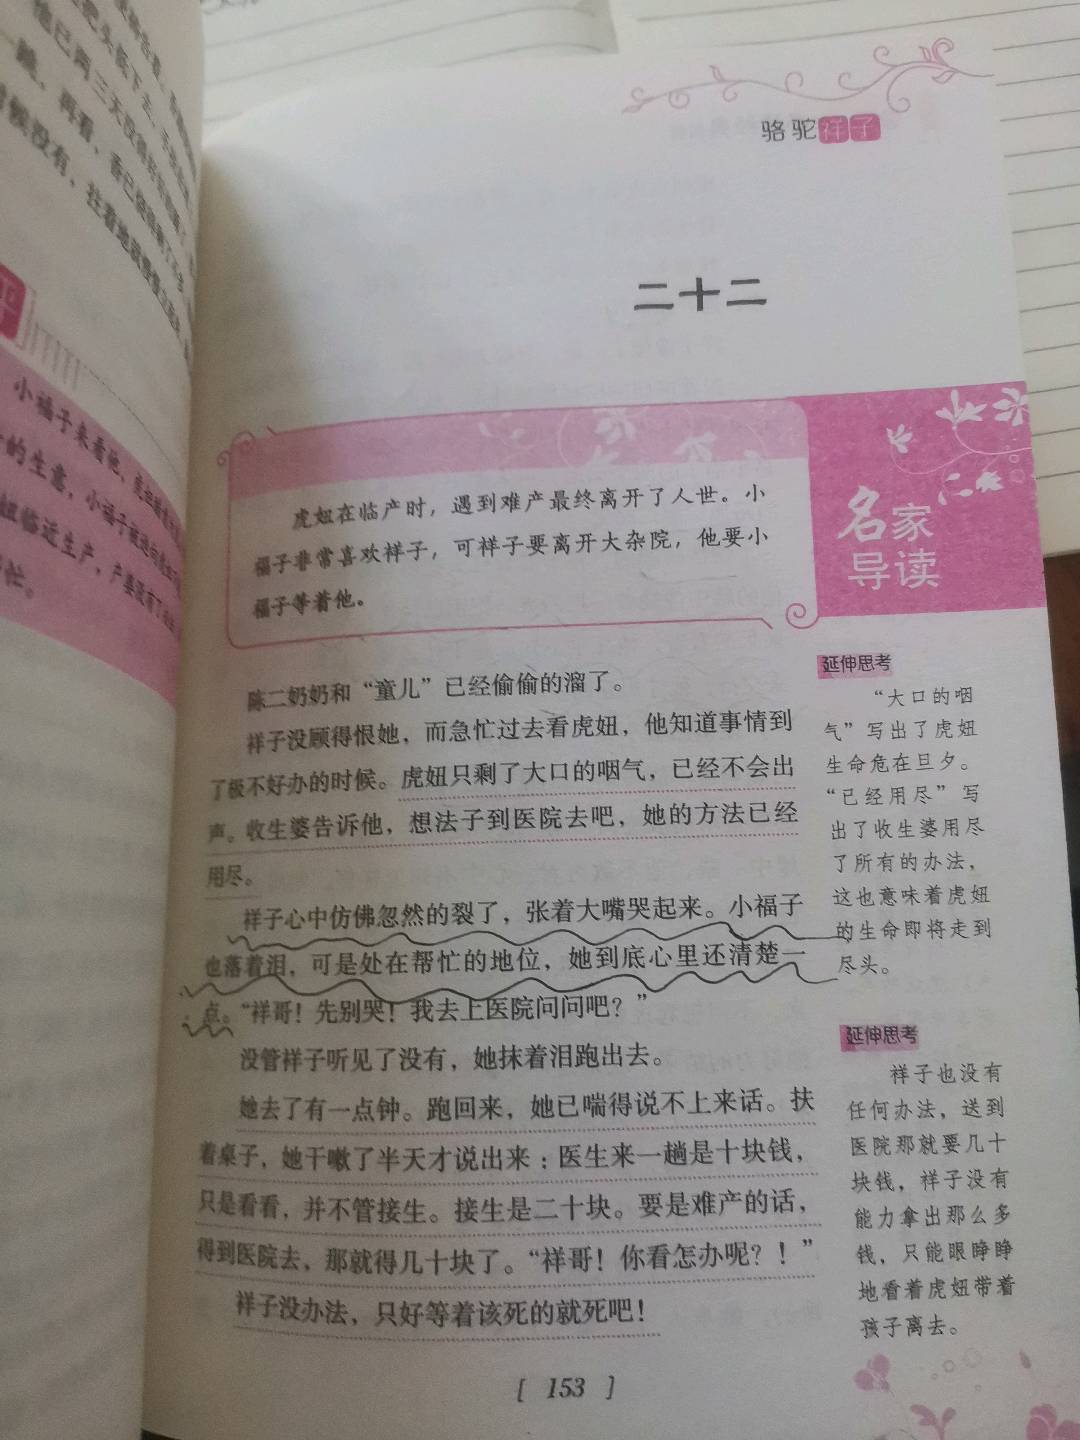 骆驼祥子
二十二
名家
导读
虎妞在临产时，遇到难产最终离开了人世。小
福子非常喜欢祥子，可祥子要离开大杂院，他要小
福子等着他。
陈二奶奶和“童儿”已经偷偷的溜了。
祥子没顾得恨她，而急忙过去看虎妞，他知道事情到
了极不好办的时候。虎妞只剩了大口的咽气，已经不会出
声。收生婆告诉他，想法子到医院去吧，她的方法已经
用尽。
祥子心中仿佛忽然的裂了，张着大嘴哭起来。小福子
也落着泪，可是处在帮忙的地位，她到底心里还清楚一
点。“祥哥！先别哭！我去上医院问问吧？”
没管祥子听见了没有，她抹着泪跑出去。
她去了有一点钟。跑回来，她已喘得说不上来话。扶
着桌子，她干嗽了半天才说出来：医生来一趟是十块钱，
只是看看，并不管接生。接生是二十块。要是难产的话，
得到医院去，那就得几十块了。“祥哥！你看怎办呢？！”
祥子没办法，只好等着该死的就死吧！
延伸思考
“大口的咽
气”写出了虎妞
生命危在旦夕。
“已经用尽”写
出了收生婆用尽
了所有的办法，
这也意味着虎妞
的生命即将走到
尽头。
延伸思考
祥子也没有
任何办法，送到
医院那就要几十
块钱，祥子没有
能力拿出那么多
钱，只能眼睁睁
地看着虎妞带着
孩子离去。
[ 153 ]